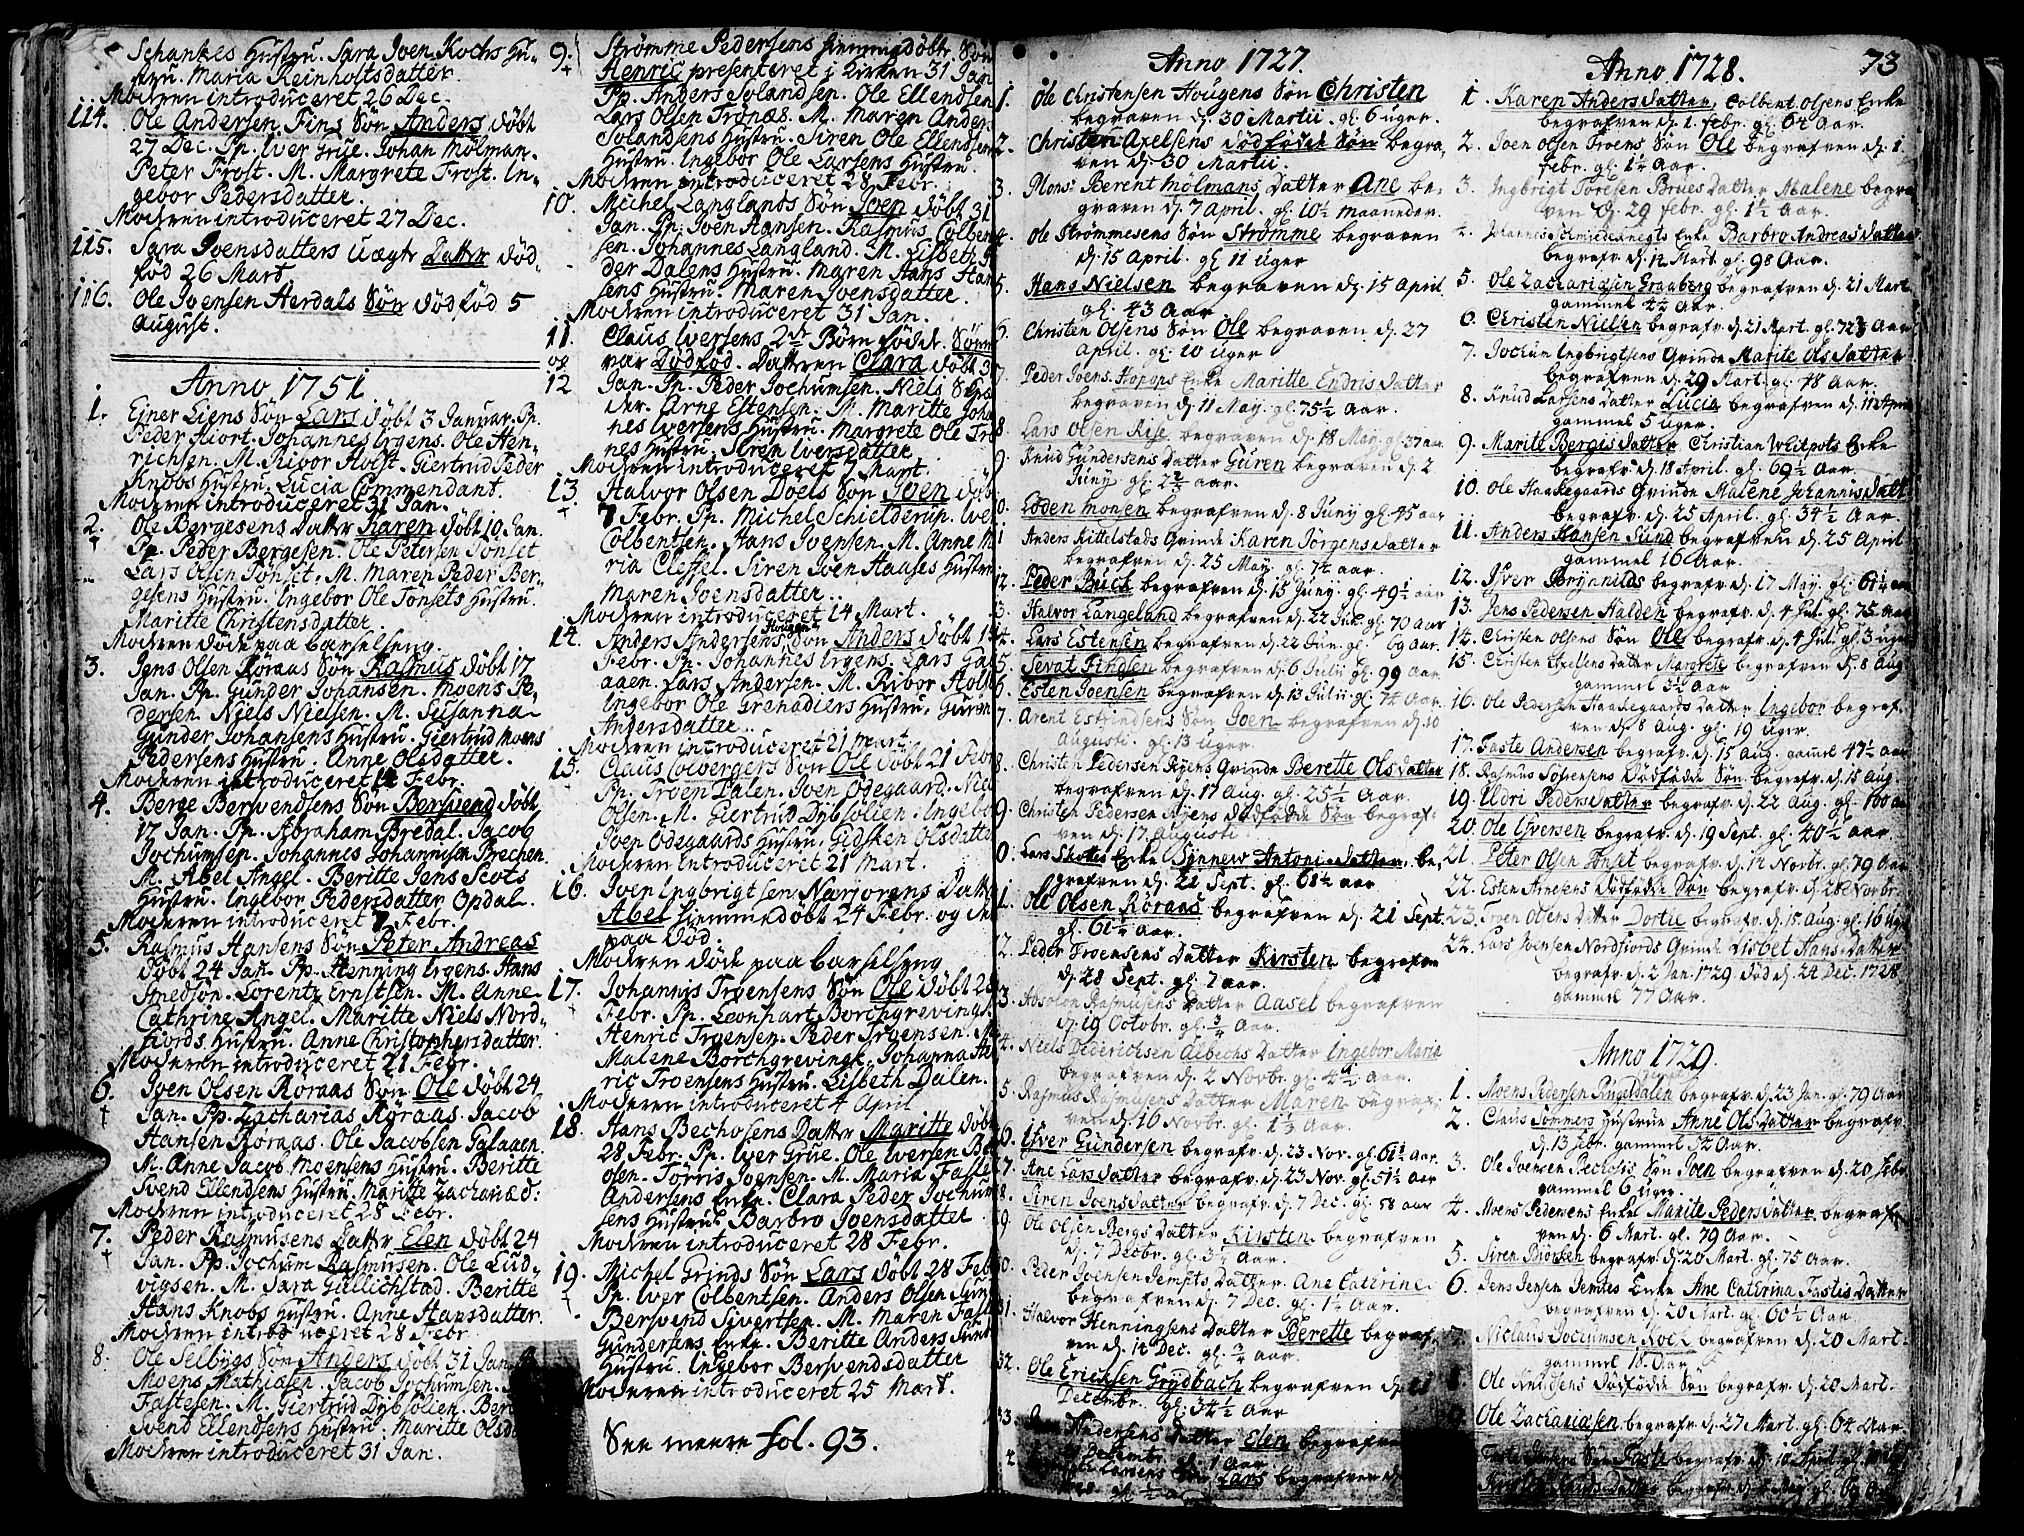 Schankes Hustru. Sara Joen Kochs Hu-
stru. Maria Reinholtsdatter.
Modren introduceret 26 Dec.
114. Ole Andersen Fins Søn Anders døbt
27 Dec. Pp. Iver Grue. Johan Mölman.
Peter Frost. M. Margrete Frost. In-
gebor Pedersdatter.
Modren introduceret 27 Dec.
115. Sara Joensdatters uægte Datter død-
fød 26 Mart
116. Ole Joensen Herdals Søn dödföd 5
August.
Anno 1751
1. Ejner Liens Søn Lars döbt 3 Januar. Pp.
Peder Hiort. Johannes Irgens. Ole Hen-
richsen. M. Ribor Holst. Giertrud Peder
Knobs Hustru. Lucia Commendant.
Modren introduceret 31 Jan.
2. Ole Børgesens Datter Karen döbt 10 Jan.
Pp. Peder Bergesen. Ole Petersen Tönset
Lars Olsen Tönset. M. Maren Peder Ber-
gesens Hustru. Ingebor Ole Tonsets Hustru.
Maritte Christensdatter.
Modren döde paa barselseng.
3. Jens Olsen Röraas Søn Rasmus döbt 17
Jan. Pp. Gunder Johansen. Moens Pe-
dersen. Niels Nielsen. M. Susanna
Gunder Johansens Hustru. Giertrud Moens
Pedersens Hustru. Anne Olsdatter.
Modren introduceret 14 Febr.
4. Berge Bersvendsens Søn Bersvend döbt
17 Jan. Pp. Abraham Bredal. Jacob
Jochumsen. Johannes Johannisen Brechen.
M. Abel Angel. Beritte Jens Scots
Hustru. Ingebor Pedersdatter Opdal.
Modren introduceret 7 Febr.
5. Rasmus Hansens Søn Peter Andreas
döbt 24 Jan. Pp. Henning Irgens. Hans
Smedson. Lorentz Ernstsen. M. Anne
Cathrine Angel. Maritte Niels Nord-
fiords Hustru. Anne Christophersdatter.
Modren introduceret 21 Febr.
6. Joen Olsen Roraas Søn Ole döbt 24
Jan. Pp. Zacharias Roraas. Jacob
Hansen Roraas. Ole Jacobsen Galaaen.
M. Anne Jacob Moensens Hustru. Beritte
Svend Ellendsens Hustru. Maritte Zachariæd:
Modren introduceret 28 Febr.
7. Peder Rasmusens Datter Elen döbt 24
Jan. Pp. Jochum Rasmusen. Ole Lud-
vigsen. M. Sara Gullichstad. Beritte
Hans Knobs Hustru. Anne Hansdatter.
Modren introduceret 28 Febr.
8. Ole Selbygs Søn Anders döbt 31 Jan.
Moens Mathiasen. Jacob Jochumsen.
Fastesen. M. Giertrud Dybsölien.
Svend Ellendsens Hustru. Maritte
Modren introduceret 31 Jan.
9. Strömme Pedersens hiemmedöbte Søn
Henric presenteret i Kirken 31 Jan
Pp. Anders Solandsen. Ole Ellendsen
Lars Olsen Trönæs. M. Maren Ander
Solandsens Hustru. Siren Ole Ellendsens
Hustru. Ingebor Ole Larsens Hustru.
Modren introduceret 28 Febr.
10. Michel Langlands Søn Joen döbt 31
Jan. Pp. Joen Hansen. Rasmus Colbent
sen. Johannes Langland. M. Lisbeth
der Dalens Hustru. Maren Hans Han
sens Hustru. Maren Joensdatter.
Modren introduceret 31 Jan.
11. Claus Iversens 2de Børn födde. Sønnen
og var Dødföd. Datteren Clara döbt 3
12 Jan. Pp. Peder Jochumsen. Niels
Arne Estensen. M. Maritte Joha
nes Iversens Hustru. Margrete Ole
nes Hustru. Siren Iversdatter.
Modren introduceret 7 Mart.
13. Halvor Olsen Doels Søn Joen döbt
7 Febr. Pp. Michel Schielderup. Iver
Colbentsen. Hans Joensen. M. Anne M
ria Cleffel. Siren Joen Haases Hustru
Maren Joensdatter.
Modren introduceret 14 Mart.
14. Anders Andersens Hougen Søn Anders döbt 14
Febr. Pp. Johannes Irgens. Lars Gal
aaen. Lars Andersen. M. Ribor Hols
Ingebor Ole Grenadiers Hustru. Guren
Andersdatter.
Modren introduceret 21 Mart.
15. Claus Colbergers Søn Ole döbt 21 Febr
Pp. Troen Dalen. Joen Ödegaard. Niel
Olsen. M. Giertrud Dybsölien. Ingebor
Joen Odegaards Hustru. Gidsken Olsdatte
Modren introduceret 21 Mart.
16. Joen Ingbrigtsen Narjorens Datt
Abel hiemmedöbt 24 Febr. og
paa död.
Modren döde paa barselseng
17. Johannis Troensens Søn Ole döbt 28
Febr. Pp. Leonhart Borchgrevings.
Henric Troensen. Peder Troensen.
Malene Borchgrevingk. Johanna He
ric Troensens Hustru. Lisbeth Dalen.
Modren introduceret 4 April
18. Hans Bechosens Datter Maritte döbt
28 Febr. Pp. Iver Grue. Ole Iversen
olen. Törris Joensen. M. Maria Faste
Andersens Enke. Clara Peder Jochum
sens Hustru. Barbro Joensdatter
Modren introduceret 28 Febr.
19. Michel Grinds Søn Lars döbt 28 Feb
Pp. Iver Colbentsen. Anders Olsen
Bersvend Sivertsen. M. Maren Faste
Gundersens Enke. Beritte Anders
Hustru. Ingebor Bersvendsdatter
Modren introduceret 25 Mart.
See meere fol. 93.
Anno 1727.
1. Ole Christensen Hougens Søn Christen
begraven d. 30 Martii. gl. 6 uger.
2. Christen Axelsens dödfödde Søn begra-
ven d. 30 Martii.
3. Mons. Berent Mölmans Datter Ane be-
graven d. 7 April. gl. 10½ maaneder.
4. Ole Strömmesens Søn Strömme begraven
d. 15 April. gl. 11 uger
5. Hans Nielsen begraven d. 15 April
gl. 43 Aar
6. Christen Olsens Søn Ole begraven d. 27
April. gl. 10 uger
7. Peder Joens. Hopops Enke Maritte Endris Datter
begraven d. 11 May. gl. 75½ Aar.
8. Lars Olsen Rise begraven d. 18 May. gl. 37 aar
9. Knud Gundersens Datter Guren begraven d. 2
Juny gl. 2¾ aar.
0. Loden Monsen begrafven d. 8 Juny gl. 45 aar
1 Anders Kittelstads Qvinde Karen Jörgens datter
begrafven d. 25 May. gl. 74 aar.
12. Peder Buch begrafven d. 15 Juny. gl. 49½ aar
3. Halvor Langeland begrafven d. 22 Jul. gl. 70 aar
4. Lars Estensen begrafven d. 22 Jun. gl. 69 aar.
5. Sevat Findsen begrafven d. 6 Julii gl. 99 aar
6. Esten Joensen begrafven d. 13 Julii gl. 74 Aar.
7. Arent Estrindsens Søn Joen begrafven d. 10
Augusti. gl. 13 uger.
8. Christen Pedersen Ryens Qvinde Berette Olsdatter
begrafven d. 17 Aug. gl. 25½ Aar.
9. Christen Pedersen Ryens dödfödde Søn begraf-
ven d. 17 Augusti.
0. Lars Skotts Enke Synnew Antonisdatter be-
grafven d. 21 Sept. gl. 68½ aar
1. Ole Olsen Röraas begrafven d. 21 Sept.
gl. 61½ aar.
2. Peder Troensens Datter Kirsten begrafven
d. 28 Sept. gl. 7 aar.
3. Absolon Rasmusens Datter Aasel begrafven
d. 19 Octobr. gl. ¾ Aar.
4. Niels Dederichsen Albechs Datter Ingebor Maria
begrafven d. 2 Novbr. gl. 4½ Aar.
5. Rasmus Rasmusens Datter Maren begraf-
ven d. 16 Novbr. gl. 1½ Aar.
6. Ifver Gundersen begrafv. d. 23 Nov. gl. 61½ aar.
7. Ane Larsdatter begrafv. d. 23 Nov. gl. 51½ aar
8. Siren Joensdatter begrafv. d. 7 Dec. gl. 58 aar
9. Ole Olsen Bergs Datter Kirsten begrafven
d. 7 Decbr. gl. 3½ aar.
0. Peder Joensen Jempts Datter Ane Catrine
begrafven d. 7 Dec. gl. 1½ Aar.
31. Halvor Henningsens Datter Berette begraf-
ven d. 14 Dec. gl. ¾ aar.
32. Ole Ericksen Grydbach begrafven d. 21
Decembr. gl. 34½ Aar
33. Andersens Datter Elen begrafven
Decembr. gl. 1 Aar.
4. Larsens Søn Lars begrafven d.
gl. ½ a
Anno 1728. 73
1. Karen Andersdatter, Colbent Olsens Enke
begrafven d. 1. febr. gl. 64 Aar.
2. Joen Olsen Troens Søn Ole begrafven d. 1.
febr. gl. 1½ Aar.
3. Ingbrigt Toresen Brues Datter Malene begra
ven d. 29 febr. gl. 1½ Aar.
4. Johannes Schmiedeknegts Enke Barbro Andreas Datter
begrafv. d. 14 Mart. gl. 98 Aar.
5. Ole Zachariasen Graaberg begrafven d. 21 Mart.
gammel 44½ Aar.
6. Christen Nielsen begrafv. d. 21 Mart. gl. 72½ Aar
7. Jochum Ingbrigtsens Qvinde Marite Olsdatter
begrafven d. 29 Mart. gl. 48 Aar.
8. Knud Larsens Datter Lucia begrafven d. 11 April
gammel 5 uger.
9. Marite Bergisdatter Christian Weitpots Enke
begrafv. d. 18 April. gl. 69½ Aar.
10. Ole Haakegaards Qvinde Malene Johannisdatt
begrafv. d. 25 April. gl. 34½ Aar.
11. Anders Hansen Sund begrafven d. 25 April
gammel 16 Aar.
12. Ifver Brynnilds begrafv. d. 17 May. gl. 61½ aar
13. Jens Pedersen Halden begrafv. d. 4 Jul. gl. 75 aar
14. Christen Olsens Søn Ole begrafv. d. 4 Jul. gl. 3 uger
15. Christen Axelsens Datter Margrete begrafven d. 8 Aug.
gammel 3½ Aar
16. Ole Pedersen Haakegaards Datter Ingebor begraf-
ven d. 8 Aug. gl. 19 uger.
17. Faste Andersen begrafv. d. 15 Aug. gamel 47½ aar
18. Rasmus Söfrensens dödfödde Søn begrafv. d. 15 Aug.
19. Udri Pedersdatter begrafv. d. 22 Aug. gl. 100 aar
20. Ole Ifversen begrafv. d. 19 Sept. gl. 40½ aar.
21. Peter Olsen Tönset begrafv. d. 14 Novbr. gl. 79 Aar
22. Esten Arnesens dödfödde Søn begrafv. d. 28 Novbr.
23. Troen Olsens Datter Dortie begrafv. d. 15 Aug. gl. 16 uger
24. Lars Joensen Nordfjords Qvinde Lisbet Hans-Datter
begrafv. d. 2 Jan. 1729 död d. 24 Dec. 1728
gammel 77 Aar.
Anno 1729.
1. Moens Pedersen Ringeldalen begrafv. d. 23 Jan. gl. 79 Aar
2. Claus Tommers Hustrue Anne Olsdatter begrafv
d. 13 febr. gammel 54 Aar.
3. Ole Joensen Bechosis Søn Joen begrafven d. 20 febr.
gammel 6 uger.
4. Moens Pedersens Enke Marite Pedersdatter begraf-
ven d. 6 Mart. gl. 79 Aar.
5. Siren Biorken begrafv. d. 20 Mart. gl. 75 aar.
6. Jens Jensen Jemtes Enke Ane Catrina Fastis Datter
begrafven d. 20 Mart. gl. 60½ Aar.
7. Niclaus Jochumsen Koch begrafven d. 20 Mart.
gammel 18 Aar.
8. Ole Knudsens dödfödde Søn begrafv. d. 20 Mart.
9. Ole Zachariasen begrafv. d. 27 Mart. gl. 64 Aar.
Faste Søn Faste begrafv. d. 10 April gl.
datter begrafv. d. May. gl.